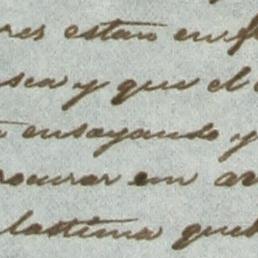 res estan en f
sea y que el
ensayando y
rocurar em ar
lastima que